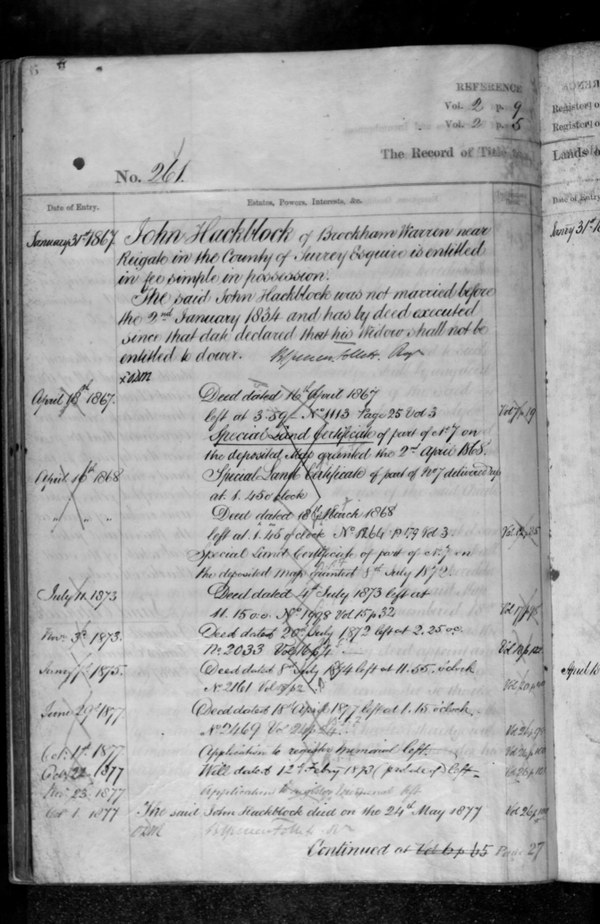 REFERENCE
Vol. 2 p. 9
Vol. 2 p. 5
The Record of Title
No. 261.
Date of Entry.
Estates, Powers, Interests, &c.
January 31st 1867
John Hackblock of Brockham Warren near
Reigate in the County of Surrey Esquire is entitled
in fee simple in possession.
The said John Hackblock was not married before
the 2nd January 1834 and has by deed executed
since that date declared that his Widow shall not be
entitled to dower.
April 18th 1867.
Deed dated 16th April 1867
left at 3.59 No 1113 Page 25 Vol 3
Special Land Certificate of part of No 7 on
the deposited Map granted the 2nd April 1868
April 16th 1868
Special Land Certificate of part of No 7 delivered up
at 1.45 o'clock
" " "
Deed dated 18th March 1868
left at 1.45 o'clock No 1264 p 179 Vol 3
Special Land Certificate of part of No 7 on
the deposited map granted 8th July 1872
July 11. 1873
Deed dated 4th July 1873 left at
11.15 o.c. No 1998 Vol 15 p 32
Novr. 3rd 1873.
Deed dated 20th July 1872 left at 2.25 o.c.
No. 2033 Vol 16 p 4
1875.
Deed dated 8th July 1874 left at 11.55. o'clock
No. 2161
June 29th 1877
Deed dated 18th April 1877 left at 1.15 o'clock
No 2469 Vol 24 p 24
Oct. 1st 1877
Application to register memorial left.
Oct 22 1877
Will dated 12th Febry 1873 left
Nov. 23rd 1877
Application to register memorial left
Oct 1. 1877
The said John Hackblock died on the 24th May 1877
Vol 26 p
Continued at Vol 6 p 65 Page 27
Register
Register
Lands
Date of Entry
Janry 31st 18
April 16